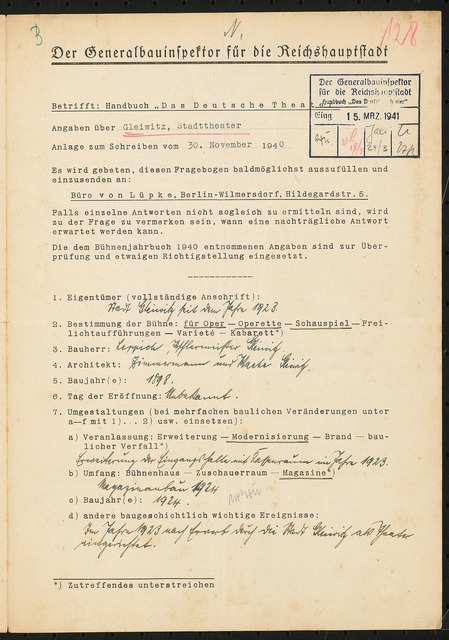 3
N.
128
Der Generalbauinspektor für die Reichshauptstadt
Der Generalbauinspektor
für die Reichshauptstadt
Handbuch „Das Deutsche Theater"
Eing 15. MRZ. 1941
Betrifft: Handbuch „Das Deutsche Theate
Angaben über Gleiwitz, Stadttheater
Anlage zum Schreiben vom 30. November 1940
Es wird gebeten, diesen Fragebogen baldmöglichst auszufüllen und
einzusenden an:
Büro von Lüpke, Berlin-Wilmersdorf, Hildegardstr. 5.
Falls einzelne Antworten nicht sogleich zu ermitteln sind, wird
zu der Frage zu vermerken sein, wann eine nachträgliche Antwort
erwartet werden kann.
Die dem Bühnenjahrbuch 1940 entnommenen Angaben sind zur Über-
prüfung und etwaigen Richtigstellung eingesetzt.
1. Eigentümer (vollständige Anschrift):
Stadt Gleiwitz seit dem Jahre 1923.
2. Bestimmung der Bühne: für Oper — Operette — Schauspiel — Frei-
lichtaufführungen — Varieté — Kabarett*)
3. Bauherr: Leppich, Gleiwitz
4. Architekt: Zimmermann und Gleiwitz.
5. Baujahr(e): 1898.
6. Tag der Eröffnung: Unbekannt.
7. Umgestaltungen (bei mehrfachen baulichen Veränderungen unter
a—f mit 1)... 2) usw. einsetzen):
a) Veranlassung: Erweiterung — Modernisierung — Brand — bau-
licher Verfall*)
Erweiterung der Eingangshalle mit Kassenraum im Jahre 1923.
b) Umfang: Bühnenhaus — Zuschauerraum — Magazine*)
Magazinanbau 1924
c) Baujahr(e): 1924.
d) andere baugeschichtlich wichtige Ereignisse:
Im Jahre 1923 nach Erwerb durch die Stadt Gleiwitz als Theater
eingerichtet.
*) Zutreffendes unterstreichen